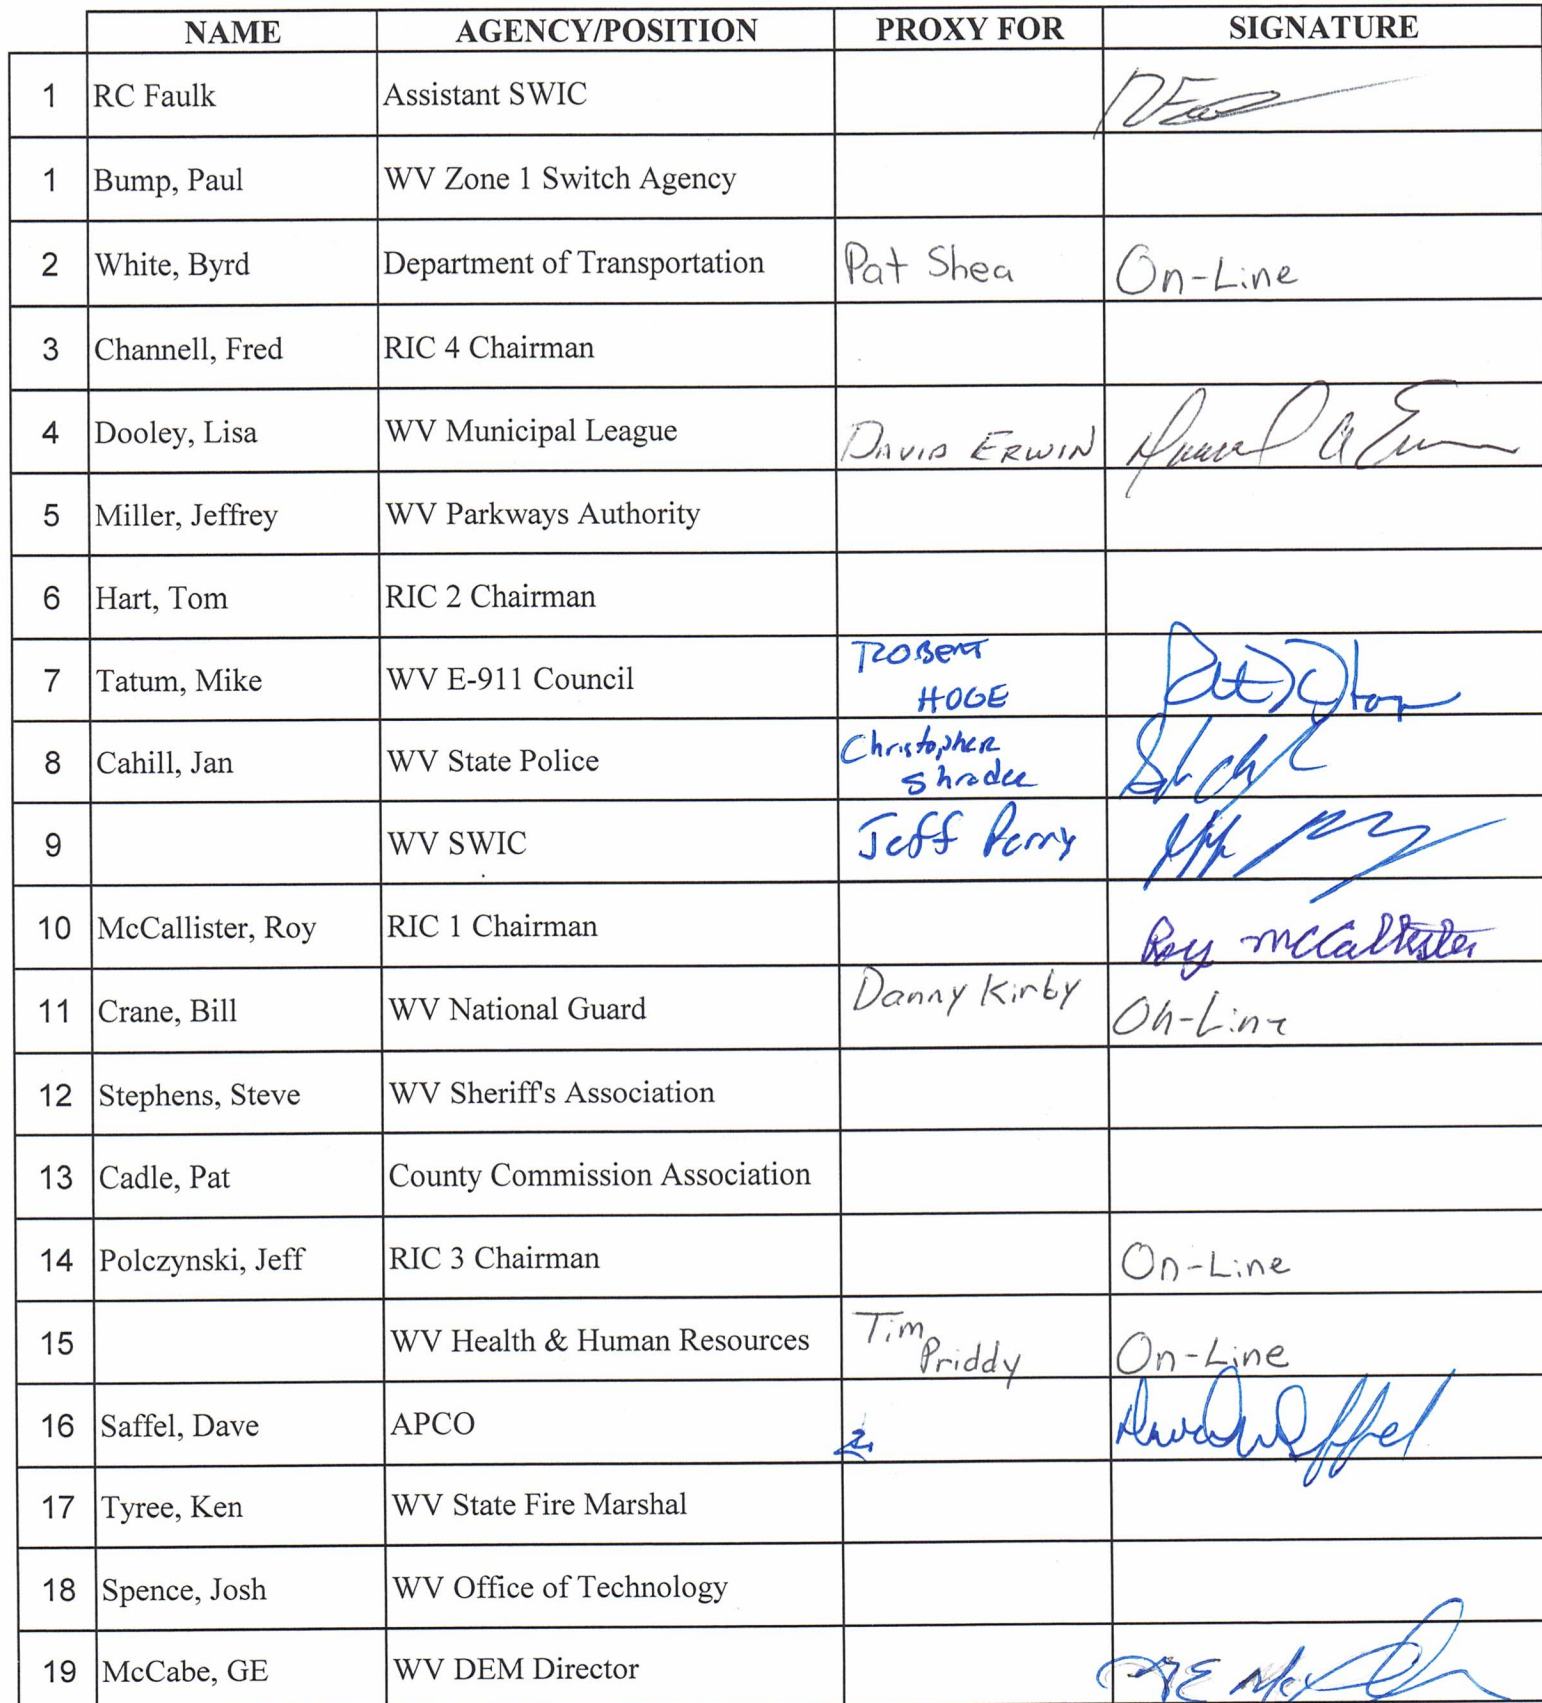 NAME AGENCY/POSITION PROXY FOR SIGNATURE
1 RC Faulk Assistant SWIC
1 Bump, Paul WV Zone 1 Switch Agency
2 White, Byrd Department of Transportation Pat Shea On-Line
3 Channell, Fred RIC 4 Chairman
4 Dooley, Lisa WV Municipal League DAVID ERWIN
5 Miller, Jeffrey WV Parkways Authority
6 Hart, Tom RIC 2 Chairman
7 Tatum, Mike WV E-911 Council ROBERT
HOGE
8 Cahill, Jan WV State Police Christopher
Shrader
9 WV SWIC Jeff Perry
10 McCallister, Roy RIC 1 Chairman Roy McCallister
11 Crane, Bill WV National Guard Danny Kirby On-Line
12 Stephens, Steve WV Sheriff's Association
13 Cadle, Pat County Commission Association
14 Polczynski, Jeff RIC 3 Chairman On-Line
15 WV Health & Human Resources Tim
Priddy On-Line
16 Saffel, Dave APCO
17 Tyree, Ken WV State Fire Marshal
18 Spence, Josh WV Office of Technology
19 McCabe, GE WV DEM Director